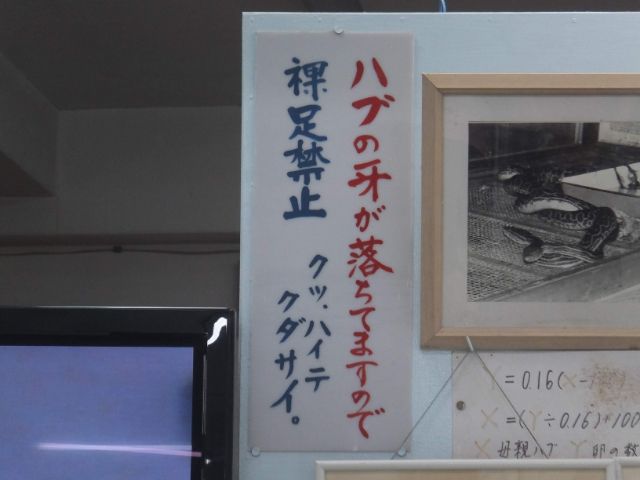 ハブの牙が落ちてますので
裸足禁止
クツ、ハイテ
クダサイ。
Y=0.16(X-
X=(Y÷0.16)+100
X 母親ハブ Y 卵の数